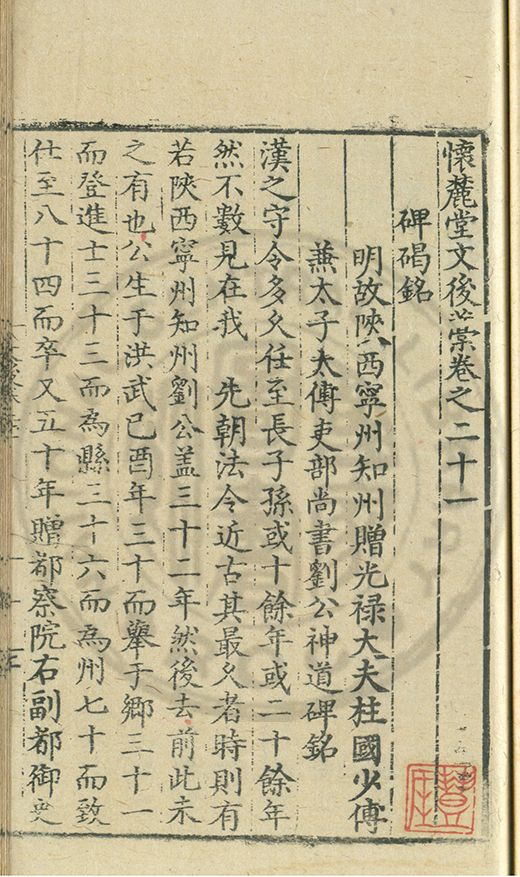 懷麓堂文後藁卷之二十一
碑碣銘
明故陝西寧州知州贈光禄大夫柱國少傅
兼太子太傅吏部尚書劉公神道碑銘
漢之守令多久任至長子孫或十餘年或二十餘年
然不數見在我　先朝法令近古其最久者時則有
若陝西寧州知州劉公盖三十二年然後去前此未
之有也公生于洪武已酉年三十而舉于鄉三十一
而登進士三十三而為縣三十六而為州七十而致
仕至八十四而卒又五十年贈都察院右副都御史